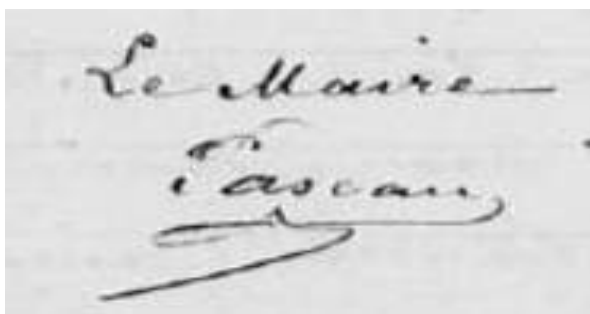 Le Maire
Pascau